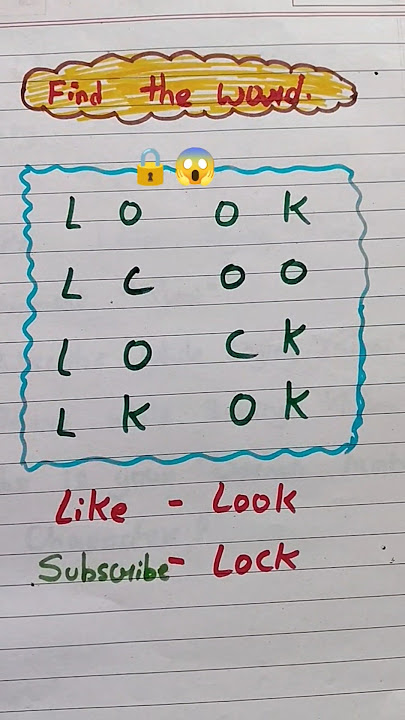 Find the word.
L O O K
L C O O
L O C K
L K O K
Like - Look
Subscribe - Lock